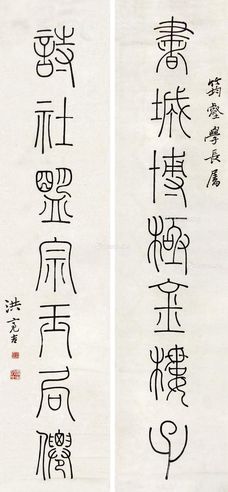 筠壑學長屬
書城博極金樓子
詩社盟宗玉局僊
洪亮吉